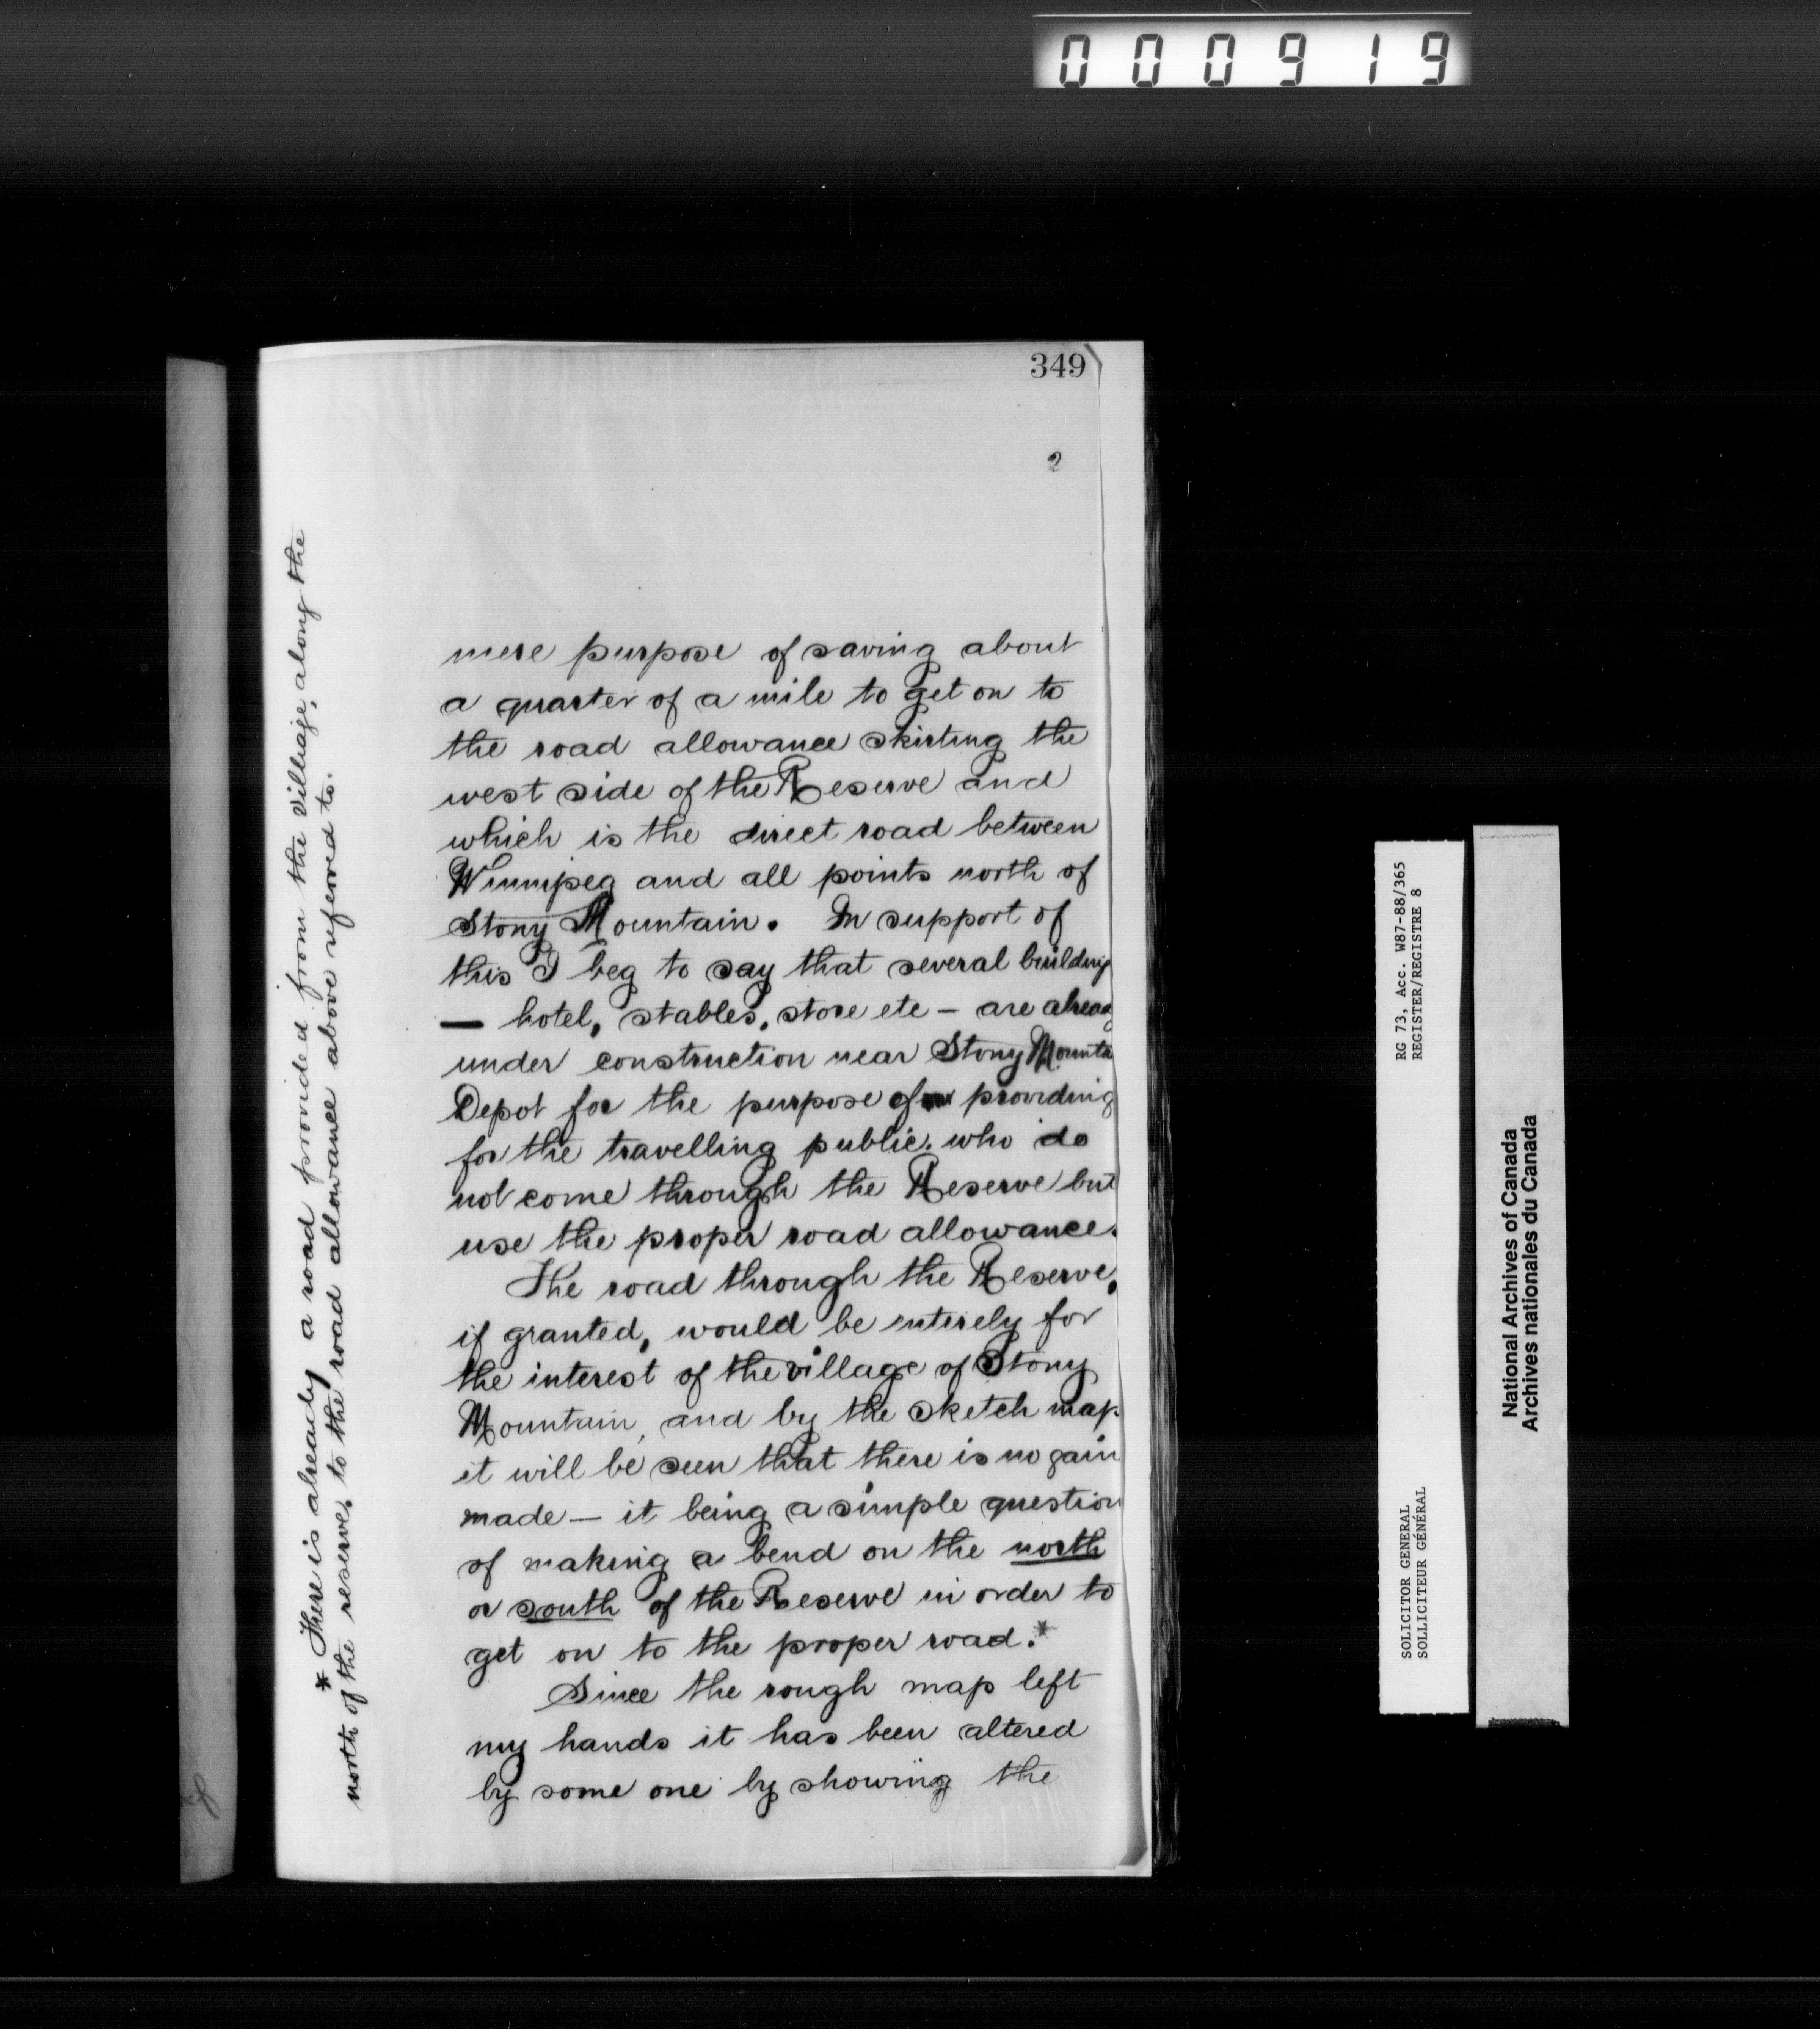 000919
349
2
mere purpose of saving about
a quarter of a mile to get on to
the road allowance skirting the
west side of the Reserve and
which is the direct road between
Winnipeg and all points north of
Stony Mountain. In support of
this I beg to say that several building
— hotel, stables, store etc — are alread
under construction near Stony Mounta
Depot for the purpose of providing
for the travelling public. who do
not come through the Reserve but
use the proper road allowance.
The road through the Reserve,
if granted, would be entirely for
the interest of the village of Stony
Mountain, and by the sketch map
it will be seen that there is no gain
made — it being a simple question
of making a bend on the north
or south of the Reserve in order to
get on to the proper road.*
Since the rough map left
my hands it has been altered
by some one by showing the
* There is already a road provided from the village, along the
north of the reserve, to the road allowance above referred to.
RG 73, Acc. W87-88/365
REGISTER/REGISTRE 8
SOLICITOR GENERAL
SOLLICITEUR GÉNÉRAL
National Archives of Canada
Archives nationales du Canada